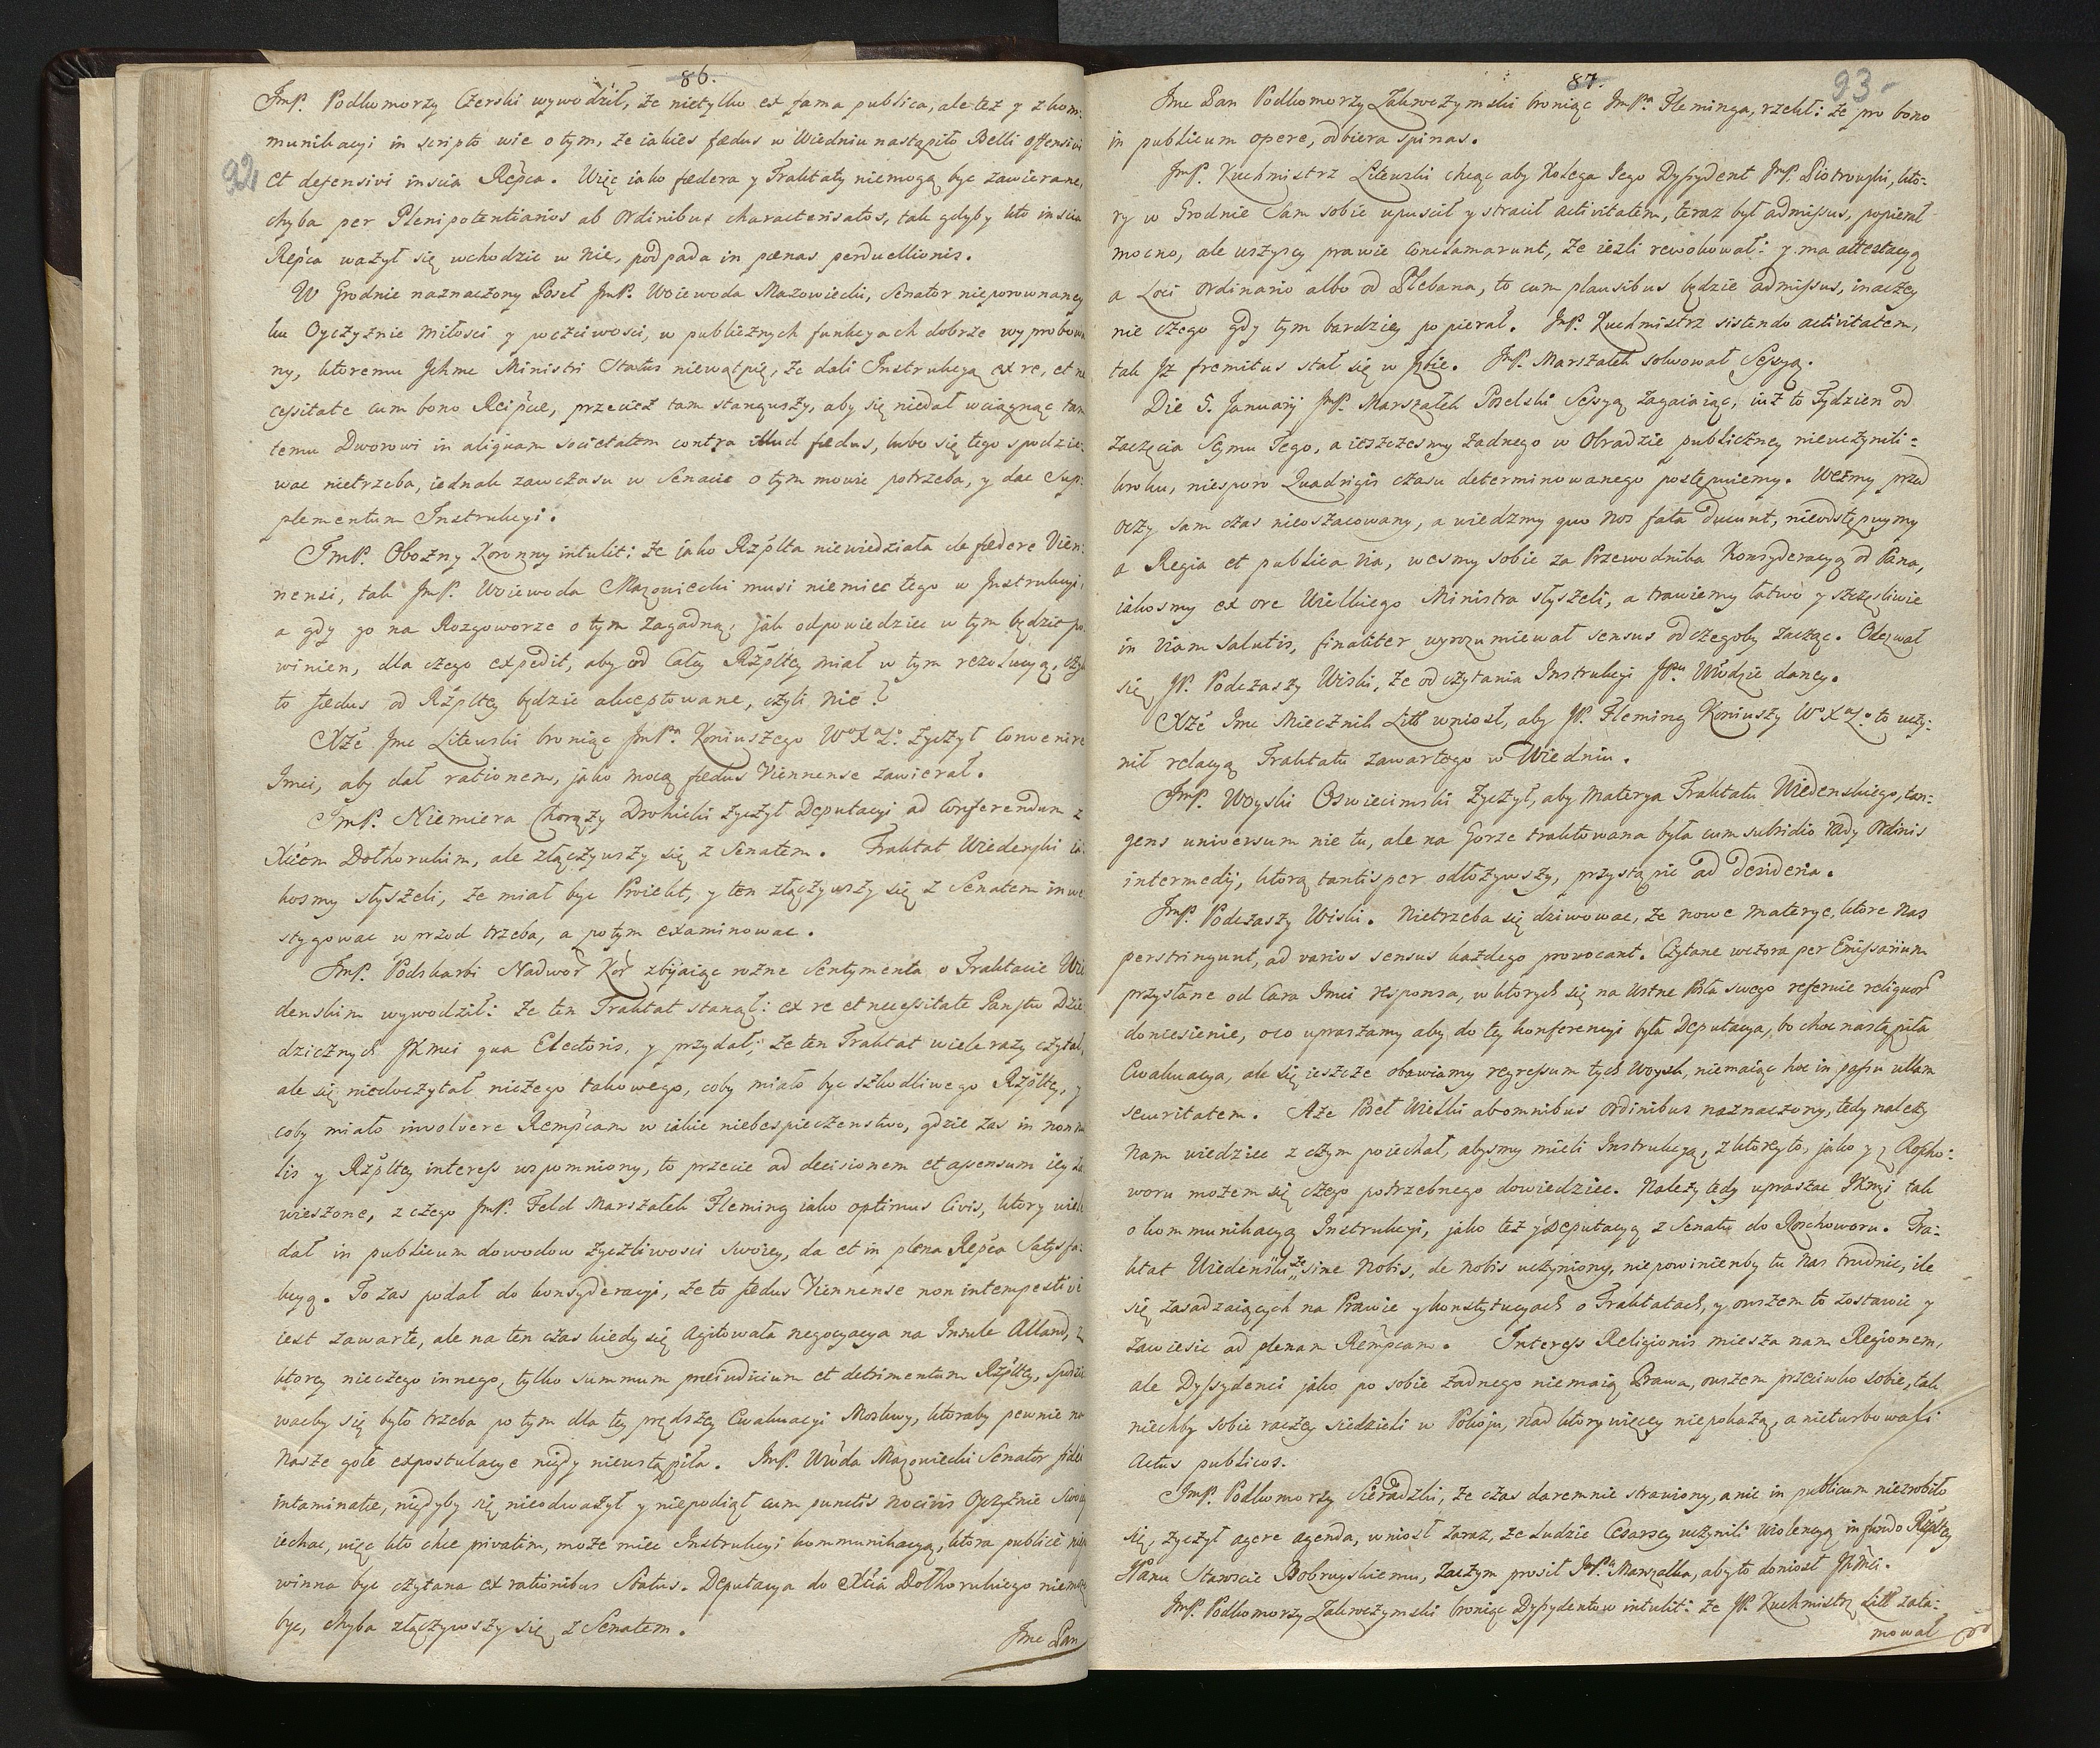 86.
92
JmP. Podkomorzy Czerski wywodził, że nietylko ex fama publica, ale też y z kom:
munikacyi in scripto wie o tym, że iakies fœdus w Wiedniu nastąpiło Belli offensivi
et defensivi inscia Repca. Więc iako fœdera y Traktaty niemogą byc zawierane,
chyba per Plenipotentiarios ab Ordinibus characterisatos, tak gdyby kto inscia
Repca ważył się wchodzic w nie, podpada in pœnas perduellionis.
W Grodnie naznaczony Poseł JmP. Woiewoda Mazowiecki, Senator nieporownaney
ku Oyczyznie miłosci y poczciwosci, w publicznych funkcyach dobrze wyprobowa
ny, ktoremu Ichmc Ministri Status niewątpię, że dali Instrukcyą ex re, et ne
cessitate cum bono Reipcae, przecież tam stanąwszy, aby się niedał wciągnąc tam
temu Dworowi in aliquam societatem contra illud fœdus, lubo się tego spodzie:
wac nietrzeba, iednak zawczasu w Senacie o tym mowic potrzeba, y dac Sup:
plementum Instrukcyi.
JmP. Obozny Koronny intulit: że iako Rzplta niewiedziała de fœdere Vien:
nensi, tak JmP. Woiewoda Mazowiecki musi niemiec tego w Instrukcyi,
a gdy go na Rozgoworze o tym zagadną, jak odpowiedziec w tym będzie po
winien, dla czego expedit, aby od Całey Rzpltey miał w tym rezolucyą, czy
to fœdus od Rzpltey będzie akceptowane, czyli nie?
Xże Jmc Litewski broniąc JmPa Koniuszego WoXaLo życzył convenire
Jmci, aby dał rationem, jako mocą fœdus Viennense zawierał.
JmP. Niemiera Chorąży Drohicki życzył Deputacyi ad conferendum z
Xciem Dołhorukim, ale złączywszy się z Senatem. Traktat Wiedenski ia
kosmy słyszeli, że miał byc Proiekt, y ten złączywszy się z Senatem inwe
stygowac wprzod trzeba, a potym examinowac.
JmP. Podskarbi Nadwor Kor zbijaiąc rozne Sentymenta o Traktacie Wie
denskim wywodził: że ten Traktat stanął: ex re et necessitate Panstw Dzie
dzicznych JKmci qua Electoris, y przydał; że ten Traktat wiele razy czytał,
ale się niedoczytał niczego takowego, coby miało byc szkodliwego Rzpltey, y
coby miało involvere Rempcam w iakie niebespieczenstwo, gdzie zas in nonnul
lis y Rzpltey interess wspomniony, to przecie ad decisionem et assensum iey za
wieszone, z czego JmP. Feld Marszałek Fleming iako optimus Civis, ktory wiele
dał in publicum dowodow życzliwosci swoiey, da et in plena Repca Satysfa:
kcyą. To zas podał do konsyderacyi, że to fœdus Viennense non intempestive
iest zawarte, ale na ten czas kiedy się agitowała negocyacya na Insule Alland, z
ktorey nieczego innego, tylko summum preiudicium et detrimentum Rzpltey, spodzie
wacby się było trzeba po tym dla tey prędszey Ewakuacyi Moskwy, ktoraby pewnie na
Nasze gołe expostulacye nigdy nieustąpiła. JmP. Wwoda Mazowiecki Senator fidei
intaminatæ, nigdyby się nieodważył y niepodiął cum punctis nocivis Oyczyznie swoiey
iechac, więc kto chce privatim, może miec Instrukcyi kommunikacyą, ktora publice niepo
winna byc czytana ex rationibus Status. Deputacya do Xcia Dołhorukiego niemoże
byc, chyba złączywszy się z Senatem.
Jmc Pan
87.
93
Jmc Pan Podkomorzy Zakroczymski broniąc JmPa Fleminga, rzekł: że pro bono
in publicum opere, odbiera spinas.
JmP. Kuchmistrz Litewski chcąc aby Kolega Jego Dyssydent JmP. Piotrowski, kto:
ry w Grodnie sam sobie upuscił y stracił activitatem, teraz był admissus, popierał
mocno, ale wszyscy prawie conclamarunt, że iezli rewokował: y ma attestacyą
a Loci Ordinario albo od Plebana, to cum plausibus będzie admissus, inaczey
nie czego gdy tym bardziey popierał. JmP. Kuchmistrz sistendo activitatem,
tak Jz fremitus stał się w Jzbie. JmP. Marszałek solwował Sessyą.
Die 5. Januarij JmP. Marszałek Poselski Sessyą zagaiaiąc, iuż to Tydzien od
zaczęcia Seymu Tego, a ieszczesmy żadnego w Obradzie publiczney nieuczynili:
kroku, niesporo Quadrigis czasu determinowanego postępuiemy. Weźmy przed
oczy sam czas nieoszacowany, a wiedzmy quo nos fata ducunt, nieodstępuymy
a Regia et publica via, wesmy sobie za Przewodnika Konsyderacyą od Pana,
iakosmy ex ore Wielkiego Ministra słyszeli, a trawiemy łatwo y szczęsliwie
in viam salutis, finaliter wyrozumiewał sensus od czegoby zacząc. Odezwał
się JP. Podczaszy Wiski, że od czytania Instrukcyi JPu Wwodzie daney.
Xże Jmc Miecznik Litt wniosł, aby JP. Fleming Koniuszy WoXaLo to uczy:
nił relacyą Traktatu zawartego w Wiedniu.
JmP. Woyski Oswiecimski życzył, aby materya Traktatu Wiedenskiego, tan:
gens universum nie tu, ale na Gorze traktowana była cum subsidio rady Ordinis
intermedij, ktorą tantisper odłożywszy, przystąpic ad desideria.
JmP. Podczaszy Wiski. Nietrzeba się dziwowac, że nowe materye, ktore nas
perstringunt, ad varios sensus każdego provocant. Czytane wczora per Emissarium
przysłane od Cara Jmci responsa, w ktorych się na ustne Posła swego referuie reliquor
doniesienie, oco upraszamy aby do tey konferencyi była Deputacya, bo choc nastąpiła
Ewakuacya, ale się ieszcze obawiamy regressum tych Woysk, niemaiąc hoc in passu ullam
securitatem. A że Poseł Wielki ab omnibus Ordinibus naznaczony, tedy należy
nam wiedziec z czym poiechał, abysmy mieli Instrukcyą, z ktoreyto, jako y z Rosho:
woru możem się czego potrzebnego dowiedziec. Należy tedy upraszac JKmci tak
o kommunikacyą Instrukcyi, jako też y Deputacyą z Senatu do Roschoworu. Tra:
ktat Wiedenski że sine nobis, de nobis uczyniony, niepowinienby tu nas trudnic, ile
się zasadzaiących na Prawie y konstytucyach o Traktatach, y owszem to zostawic y
zawiesic ad plenam Rempcam. Interess Religionis miesza nam Regionem,
ale Dyssydenci jako po sobie żadnego niemaią Prawa, owszem przeciwko sobie, tak
niechby sobie raczey siedzieli w Pokoju, nad ktory więcey niepokażą, a nieturbowali
Actus publicos.
JmP. Podkomorzy Sieradzki, że czas daremnie strawiony, a nic in publicum niezrobiło
się, życzył agere agenda, wniosł zaraz, że Ludzie Cesarscy uczynili violencyą in fundo Rzpltey
JPanu Staroscie Bobruyskiemu, zaczym prosił JmPa Marszałka, aby to doniosł JKmci.
JmP. Podkomorzy Zakroczymski broniąc Dyssydentow intulit: że JP. Kuchmistrz Litt zata:
mował